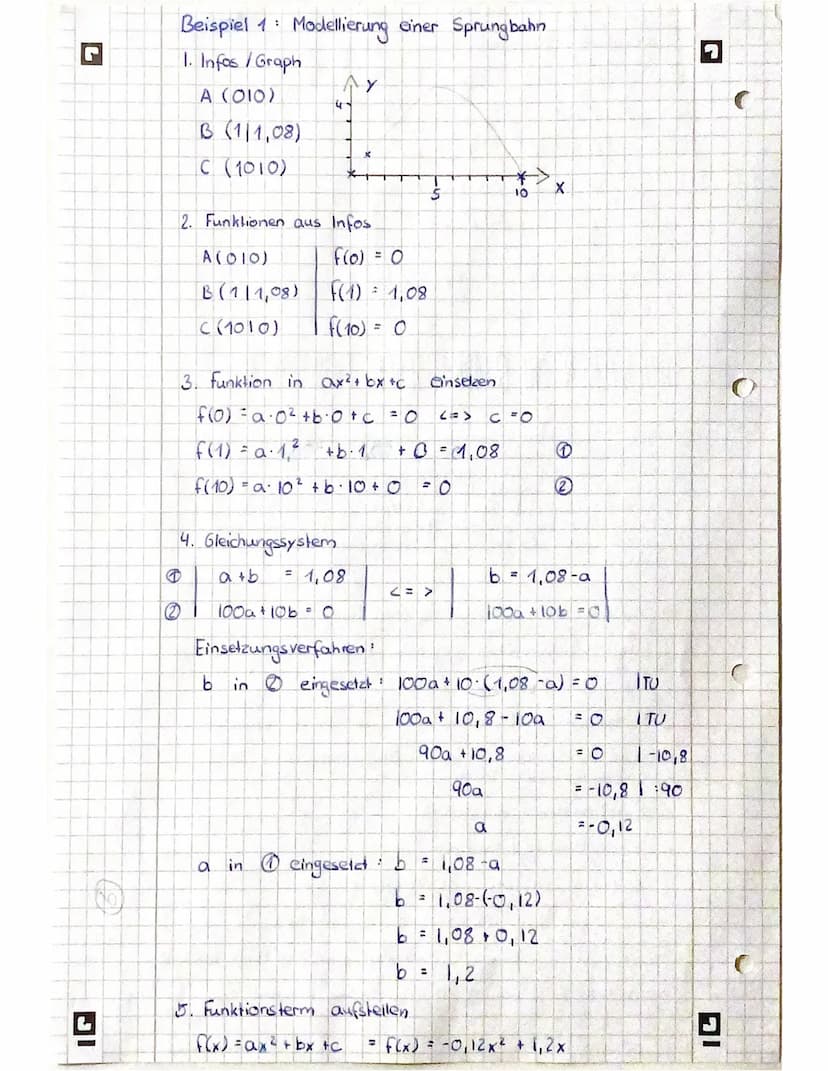 Beispiel 1: Modellierung einer Sprungbahn
1. Infos / Graph
A (0|0)
B (1|1,08)
C (10|0)
y
4
5
10
x
2. Funktionen aus Infos
A(0|0) | f(0) = 0
B(1|1,08) | f(1) = 1,08
C(10|0) | f(10) = 0
3. Funktion in ax²+bx+c einsetzen
f(0) = a·0²+b·0+c = 0 <=> c=0
f(1) = a·1,² +b·1 + 0 = 1,08 ①
f(10) = a·10²+b·10+0 = 0 ②
4. Gleichungssystem
① | a+b = 1,08 | <=> | b = 1,08-a |
② | 100a+10b = 0 | | 100a+10b = 0 |
Einsetzungsverfahren:
b in ② eingesetzt: 100a+10·(1,08-a) = 0 |TU
100a + 10,8 - 10a = 0 |TU
90a + 10,8 = 0 |-10,8
90a = -10,8 | :90
a = -0,12
a in ① eingesetzt: b = 1,08-a
b = 1,08-(-0,12)
b = 1,08+0,12
b = 1,2
5. Funktionsterm aufstellen
f(x) = ax²+bx+c = f(x) = -0,12x² + 1,2x